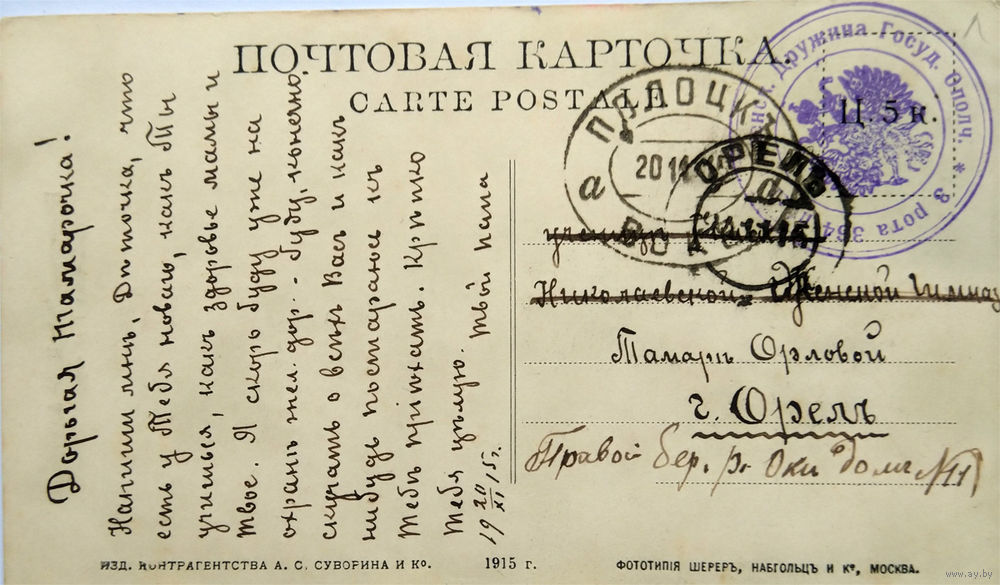 ПОЧТОВАЯ КАРТОЧКА.
CARTE POSTALE.
Ц. 5 к.
Дружина Госуд. Ополч. * 3 рота 364
ПОЛОЦКЪ
20 11
а
ВОКЗ
ОРЕЛЪ
а
11 15
Дорогая Тамарочка!
Напиши мнѣ, Дѣточка, что
есть у Тебя новаго, какъ Ты
учишься, какъ здоровье мамы и
твое. Я скоро буду уже на
охранѣ жел. дор. - буду, конечно,
скучать о всѣхъ Васъ и какъ
нибудь постараюсь къ
Тебѣ пріѣхать. Крѣпко
Тебя цѣлую. Твой папа
19 20/XI 15 г.
ученицѣ
Николаевской Женской Гимназ
Тамарѣ Орловой
г. Орелъ
Правой бер. р. Оки домъ №11
ИЗД. КОНТРАГЕНТСТВА А. С. СУВОРИНА И Ко. 1915 г.
ФОТОТИПІЯ ШЕРЕРЪ, НАБГОЛЬЦЪ И Ко, МОСКВА.
www.ay.by